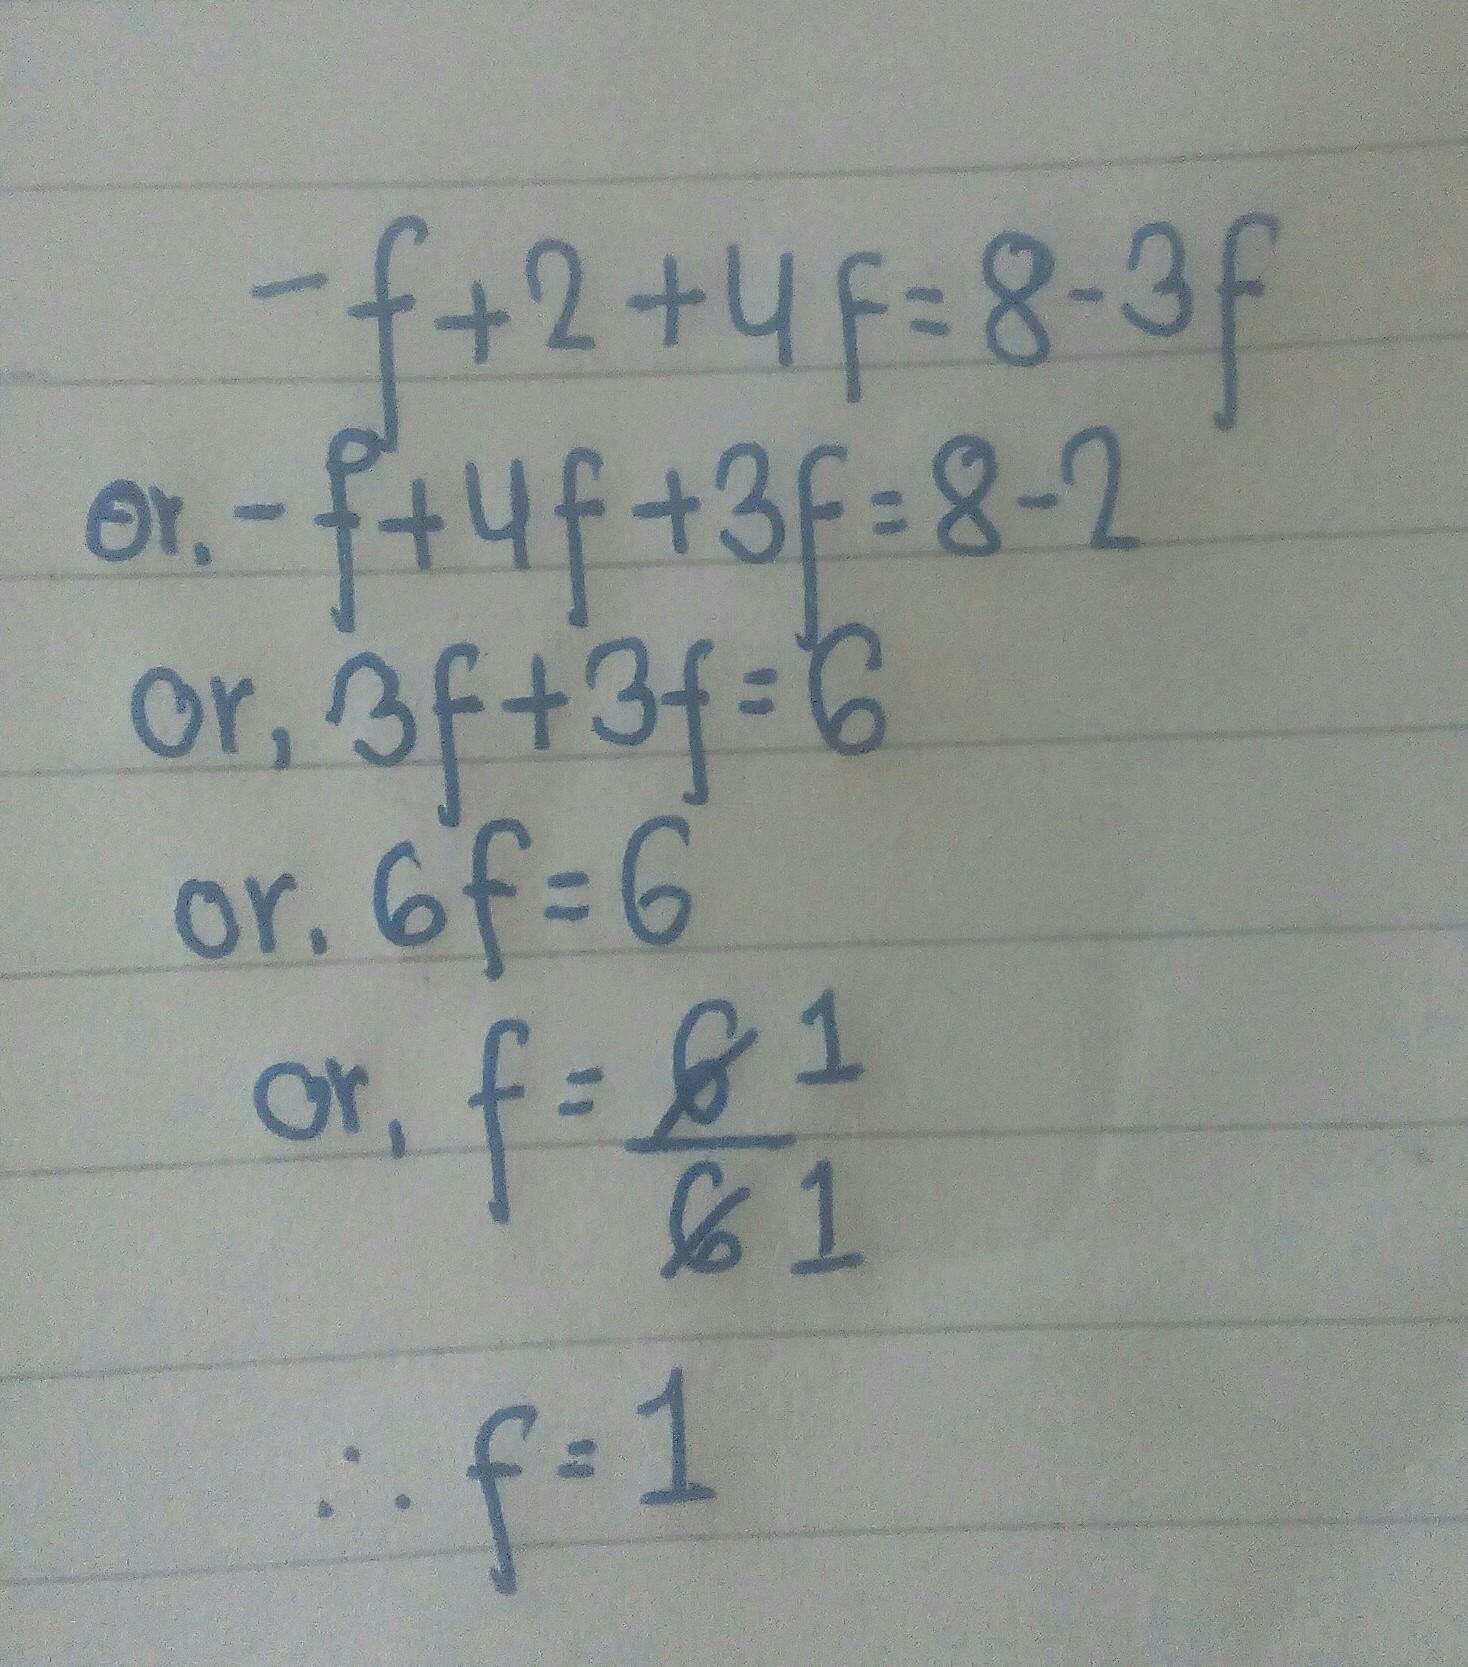 -f+2+4f=8-3f
or, -f+4f+3f=8-2
or, 3f+3f=6
or, 6f=6
or, f=6 1
6 1
∴ f=1